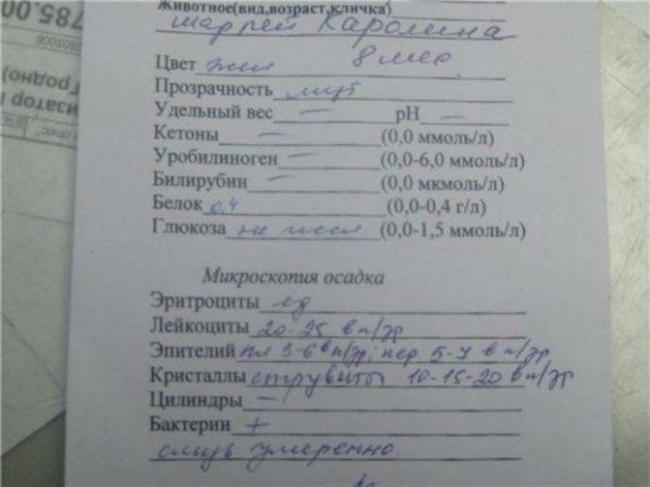 Животное(вид,возраст,кличка)
шарпей Каролина
8 мес
Цвет жел
Прозрачность мут
Удельный вес — pH —
Кетоны — (0,0 ммоль/л)
Уробилиноген — (0,0-6,0 ммоль/л)
Билирубин — (0,0 мкмоль/л)
Белок 0,4 (0,0-0,4 г/л)
Глюкоза (0,0-1,5 ммоль/л)
Микроскопия осадка
Эритроциты ед
Лейкоциты 20-25 в п/зр
Эпителий пл 3-6 в п/зр; пер. 5-7 в п/зр
Кристаллы струвиты 10-15-20 в п/зр
Цилиндры —
Бактерии +
слизь умеренно
785.00
Гродно)